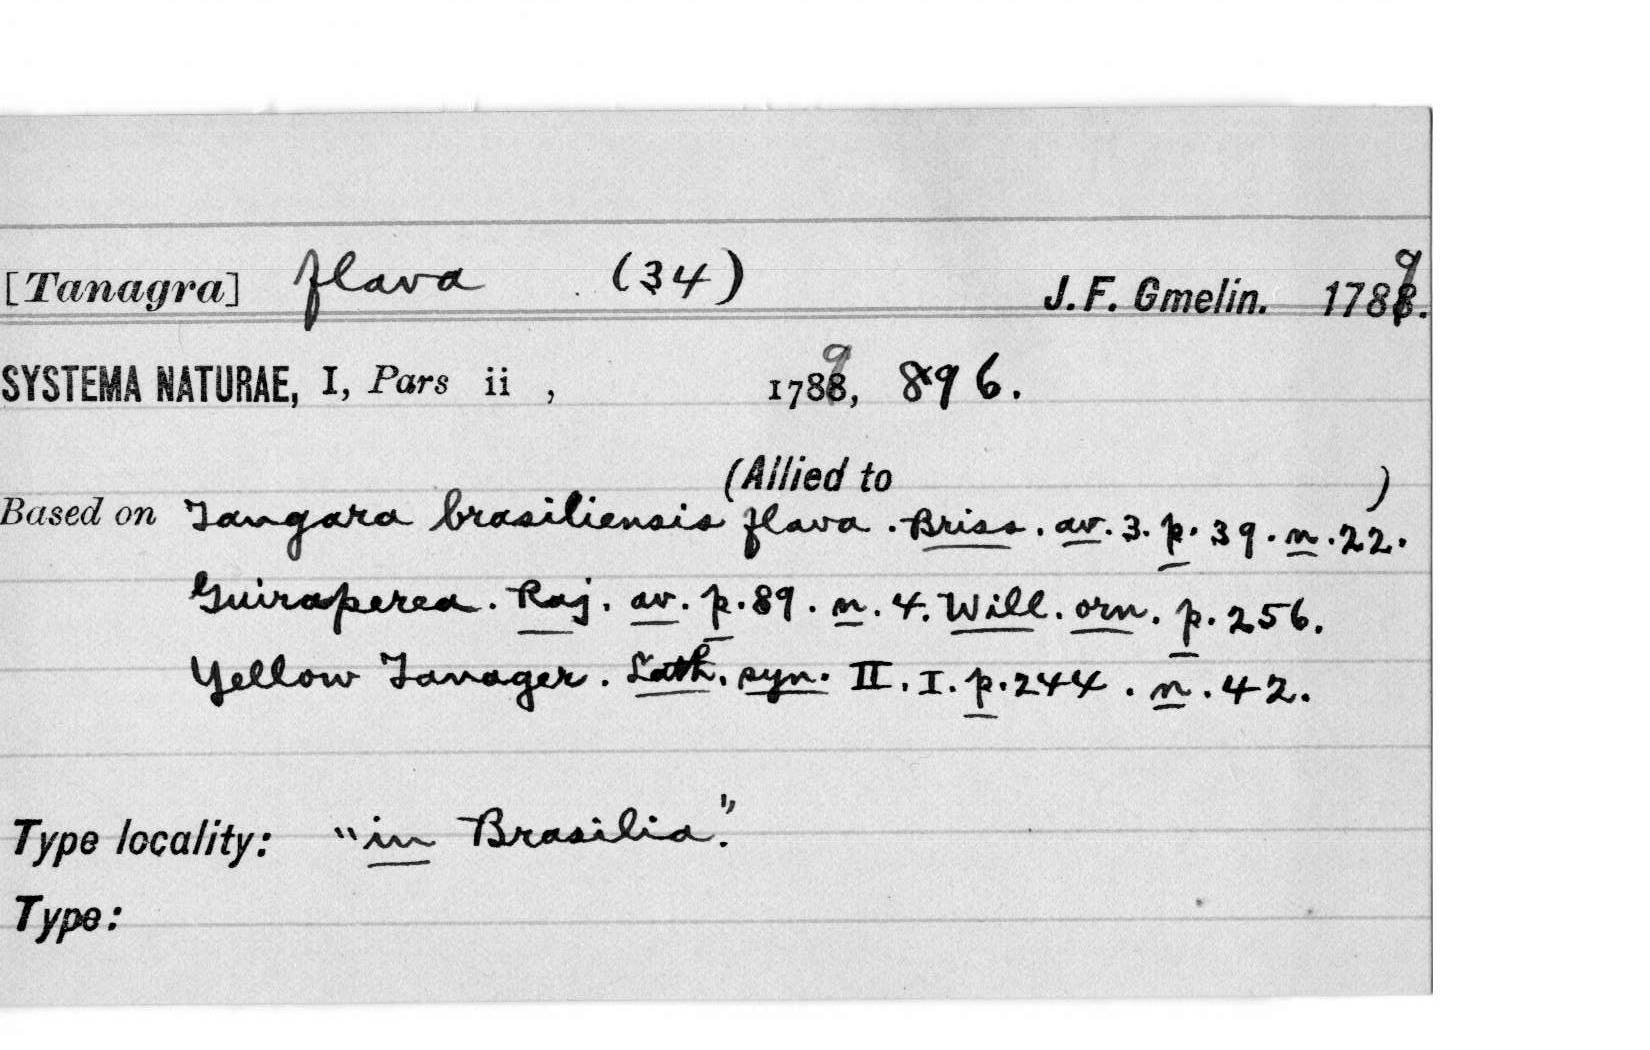 [Tanagra] flava (34) J. F. Gmelin. 1789.
SYSTEMA NATURAE, I, Pars ii , 1789, 896.
(Allied to )
Based on Tangara brasiliensis flava . Briss . av. 3. p. 39 . n . 22.
Guiraperea . Raj . av . p . 89 . n . 4. Will . orn . p. 256.
Yellow Tanager . Lath. syn. II . I . p . 244 . n . 42.
Type locality: "in Brasilia."
Type: